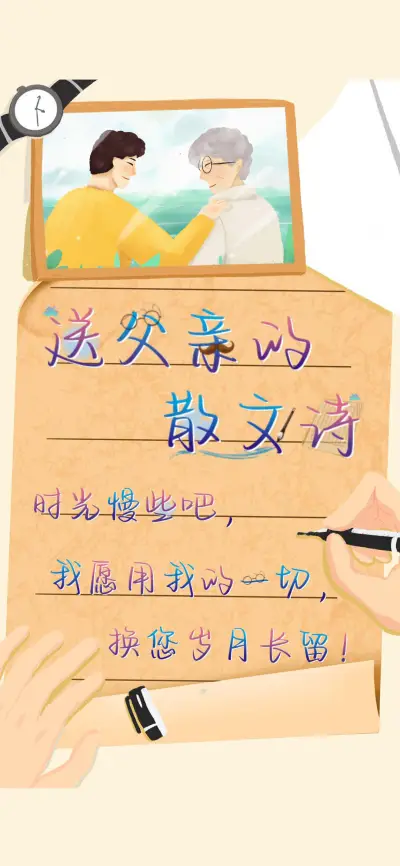 送父亲的
散文诗
时光慢些吧,
我愿用我的一切,
换您岁月长留!